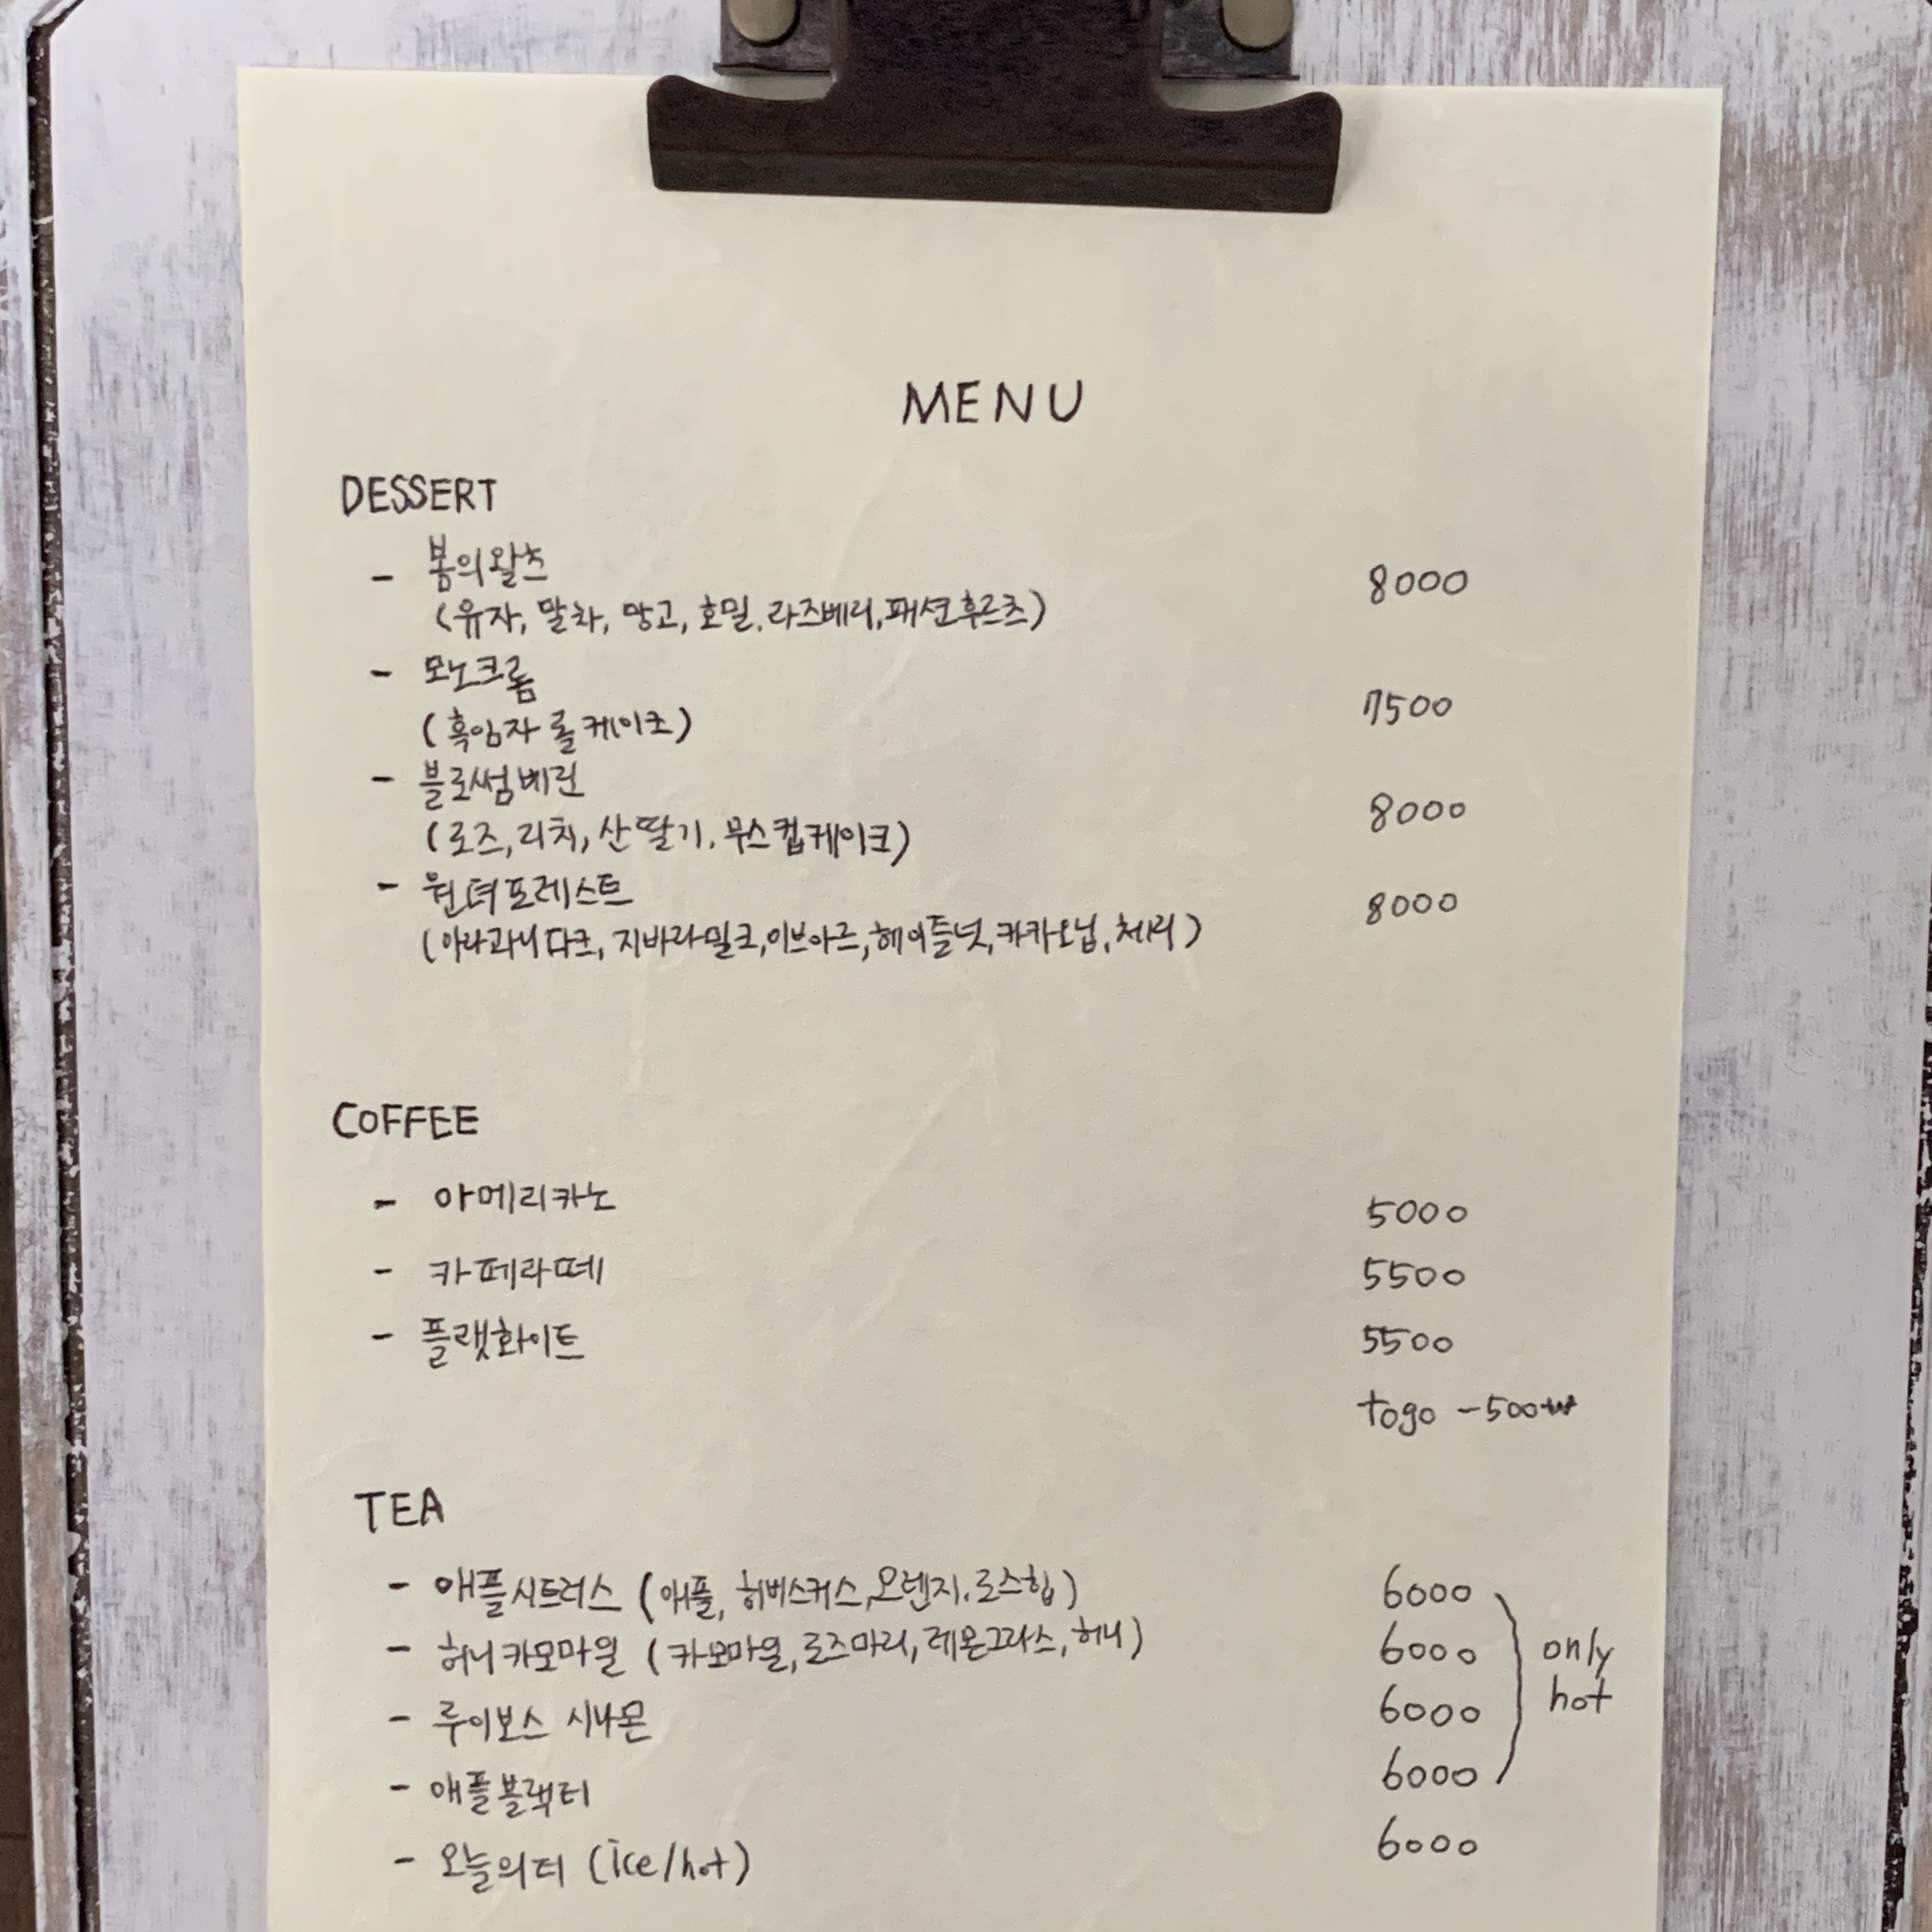 MENU
DESSERT
- 봄의왈츠 8000
(유자, 말차, 망고, 호밀, 라즈베리, 패션후르츠)
- 모노크롬
(흑임자 롤케이크) 7500
- 블로썸베린
(로즈, 리치, 산딸기, 무스컵케이크) 8000
- 윈터포레스트 8000
(아라과니다크, 지바라밀크, 이브아르, 헤이즐넛, 카카오닙, 체리)
COFFEE
- 아메리카노 5000
- 카페라떼 5500
- 플랫화이트 5500
togo -500₩
TEA
- 애플시트러스 (애플, 히비스커스, 오렌지, 로즈힙) 6000
- 허니카모마일 (카모마일, 로즈마리, 레몬그라스, 허니) 6000 only
- 루이보스 시나몬 6000 hot
- 애플블랙티 6000
- 오늘의티 (ice/hot) 6000